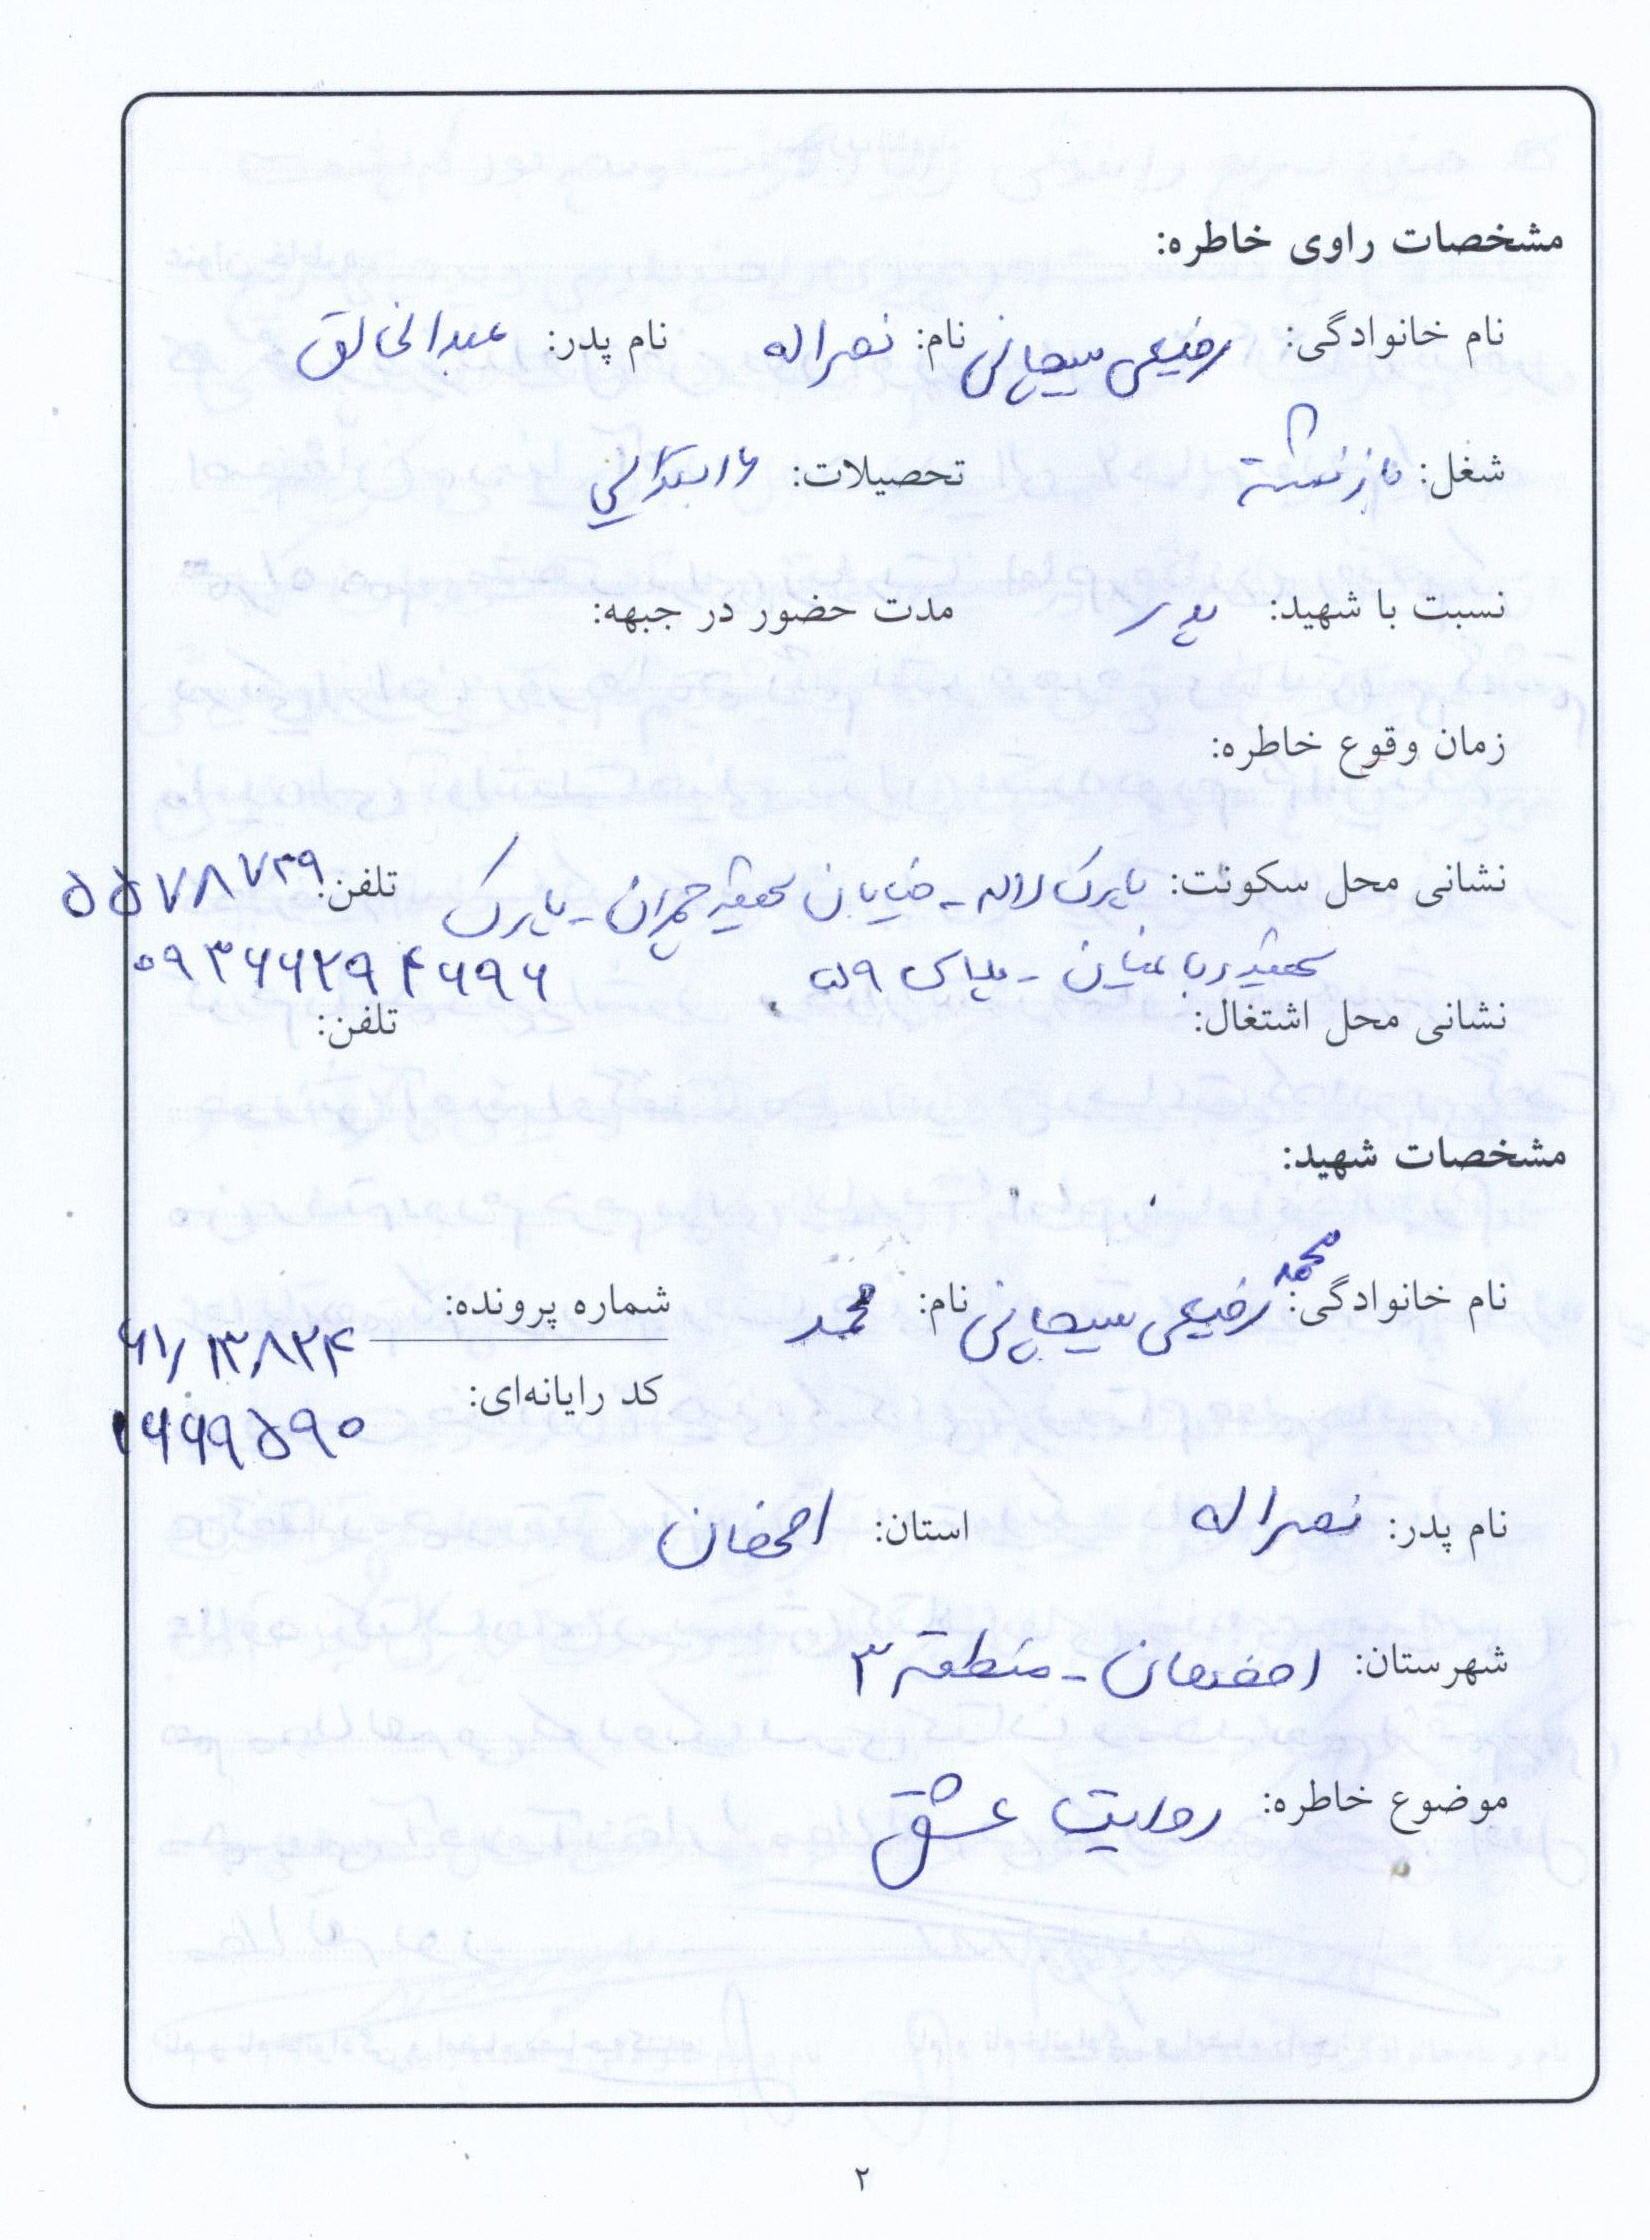 مشخصات راوی خاطره:
نام خانوادگی: رفیعی سیچانی نام: نصراله نام پدر: عبدالخالق
شغل: بازنشسته تحصیلات: ۶ ابتدائی
نسبت با شهید: پدر مدت حضور در جبهه:
زمان وقوع خاطره:
نشانی محل سکونت: پارک لاله - خیابان شهید چمران - پارک تلفن: ۵۵۷۸۷۳۹
شهید - پلاک ۵۹ ۰۹۳۶۶۲۹۴۶۹۶
نشانی محل اشتغال: تلفن:
مشخصات شهید:
محمد
نام خانوادگی: رفیعی سیچانی نام: محمد شماره پرونده: ۶۱/۱۳۸۲۴
کد رایانه‌ای: ۱۶۶۹۵۹۰
نام پدر: نصراله استان: اصفهان
شهرستان: اصفهان - منطقه ۳
موضوع خاطره: روایت عشق
۲